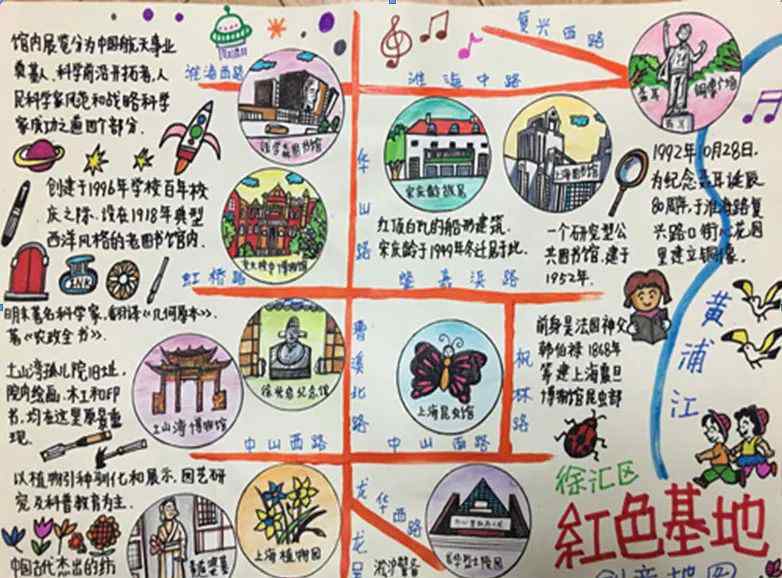 馆内展览分为中国航天事业
奠基人、科学前沿开拓者、人
民科学家风范和战略科学
家成功之道四个部分.
淮海西路
钱学森图书馆
创建于1996年学校百年校
庆之际、设在1918年典型
西洋风格的老图书馆内.
交大校史博物馆
INK
虹桥路
复兴西路
淮海中路
聂耳
铜像广场
华山路
宋庆龄故居
上海图书馆
红顶白瓦的船形建筑.
宋庆龄于1949年冬迁居于此.
一个研究型公
共图书馆.建于
1952年.
1992年10月28日,
为纪念聂耳诞辰
80周年,于淮海路复
兴路口街心花园
里建立铜像.
肇嘉浜路
黄浦江
明末著名科学家.翻译《几何原本》.
著《农政全书》.
徐光启纪念馆
土山湾孤儿院旧址.
院内绘画、木工和印
书,均在这里原景重
现.
土山湾博物馆
中山西路
曹溪北路
上海昆虫馆
中山西路
枫林路
前身是法国神父
韩伯禄1868年
筹建上海震旦
博物馆昆虫部
以植物引种驯化和展示、园艺研
究及科普教育为主.
上海植物园
中国古代杰出的纺
龙华西路
龙吴
龙华烈士陵园
淞沪警备
徐汇区
紅色基地